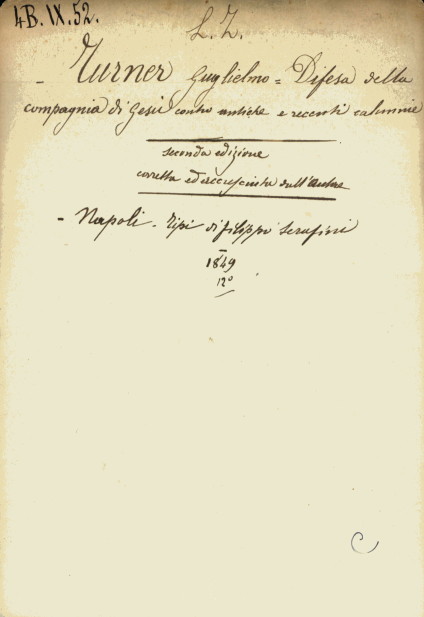 4B.IX.52.
L. Z.
- Turner Guglielmo = Difesa della
compagnia di Gesù contro antiche e recenti calunnie
seconda edizione
corretta ed accresciuta dall'Autore
- Napoli - Tipi di Filippo Serafini
1849
12°
C